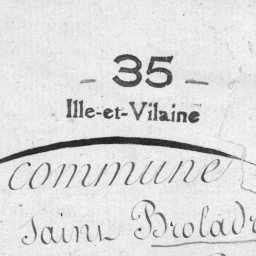 - 35 -
Ille-et-Vilaine
commune
Saint Brolad